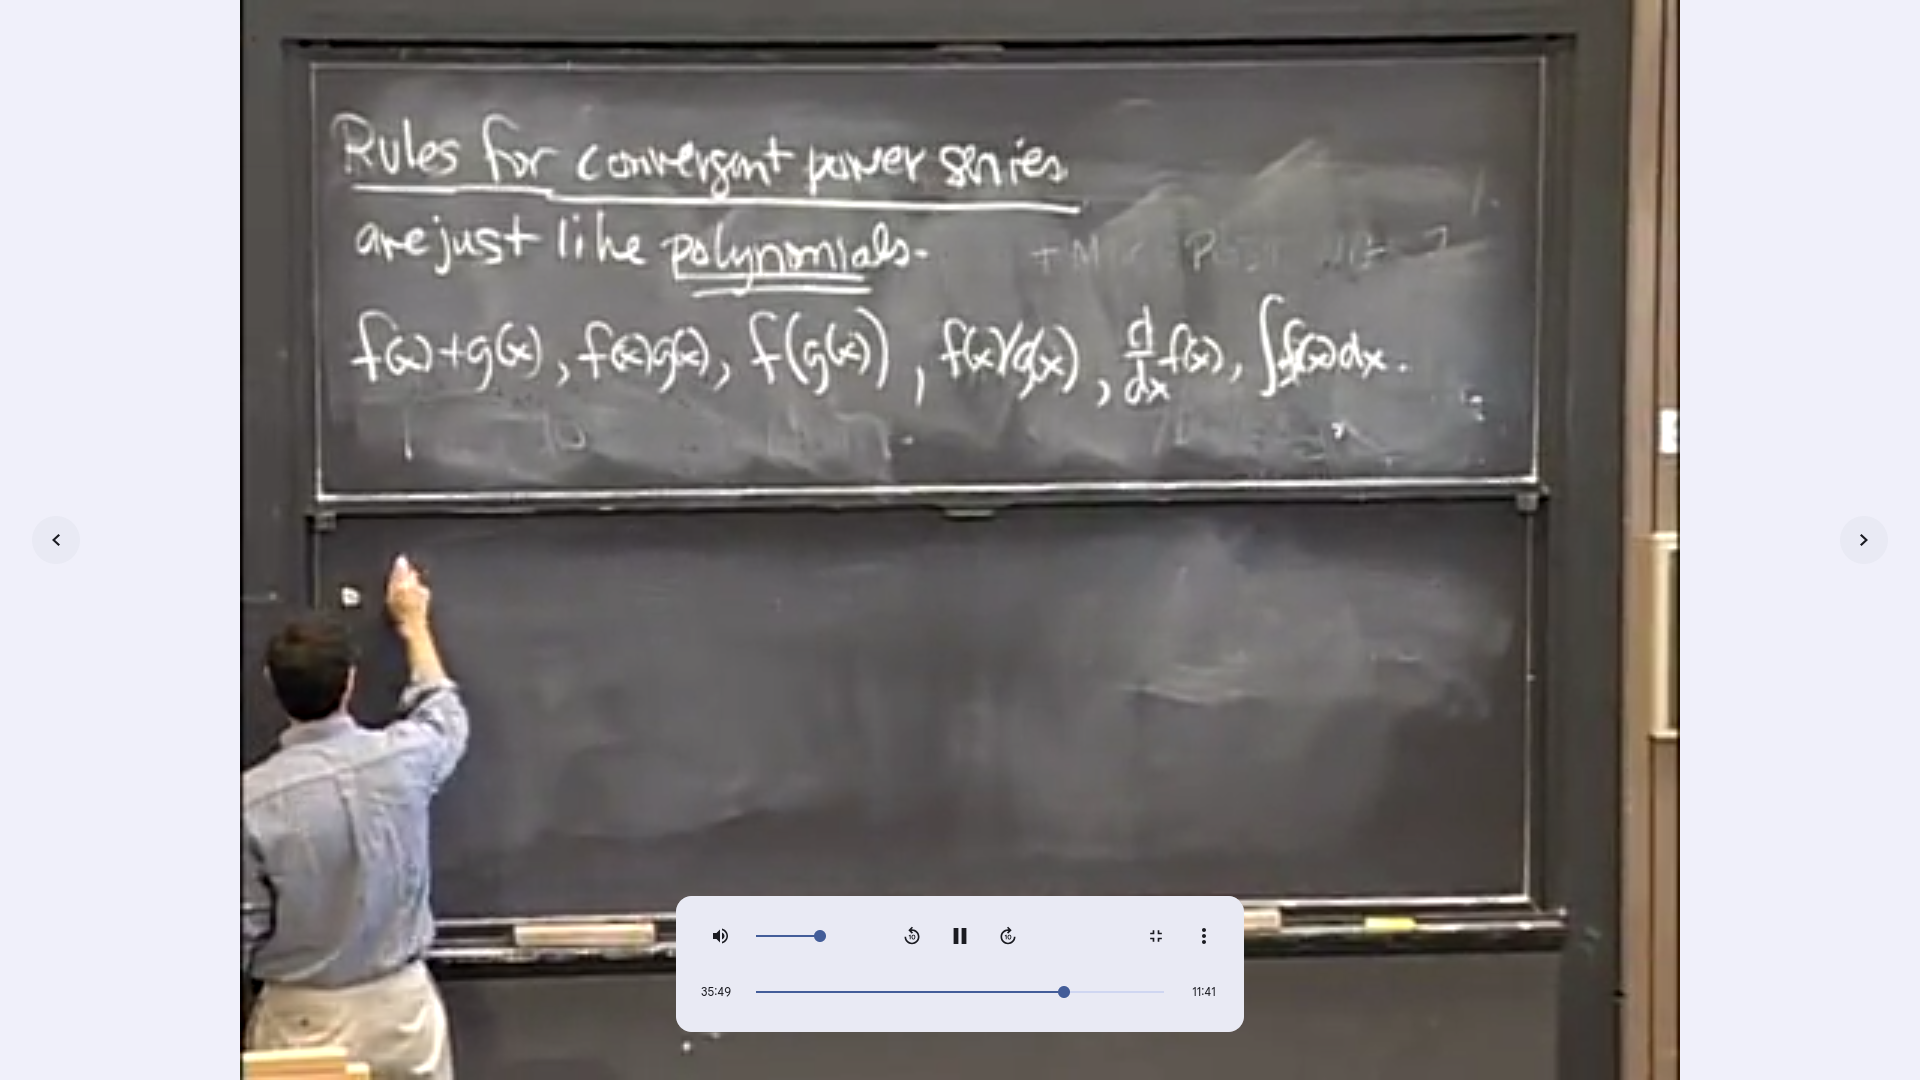 Rules for convergent power series
are just like polynomials.
f(x)+g(x), f(x)g(x), f(g(x)), f(x)/g(x), d/dx f(x), ∫f(x)dx.
10
10
35:49
11:41